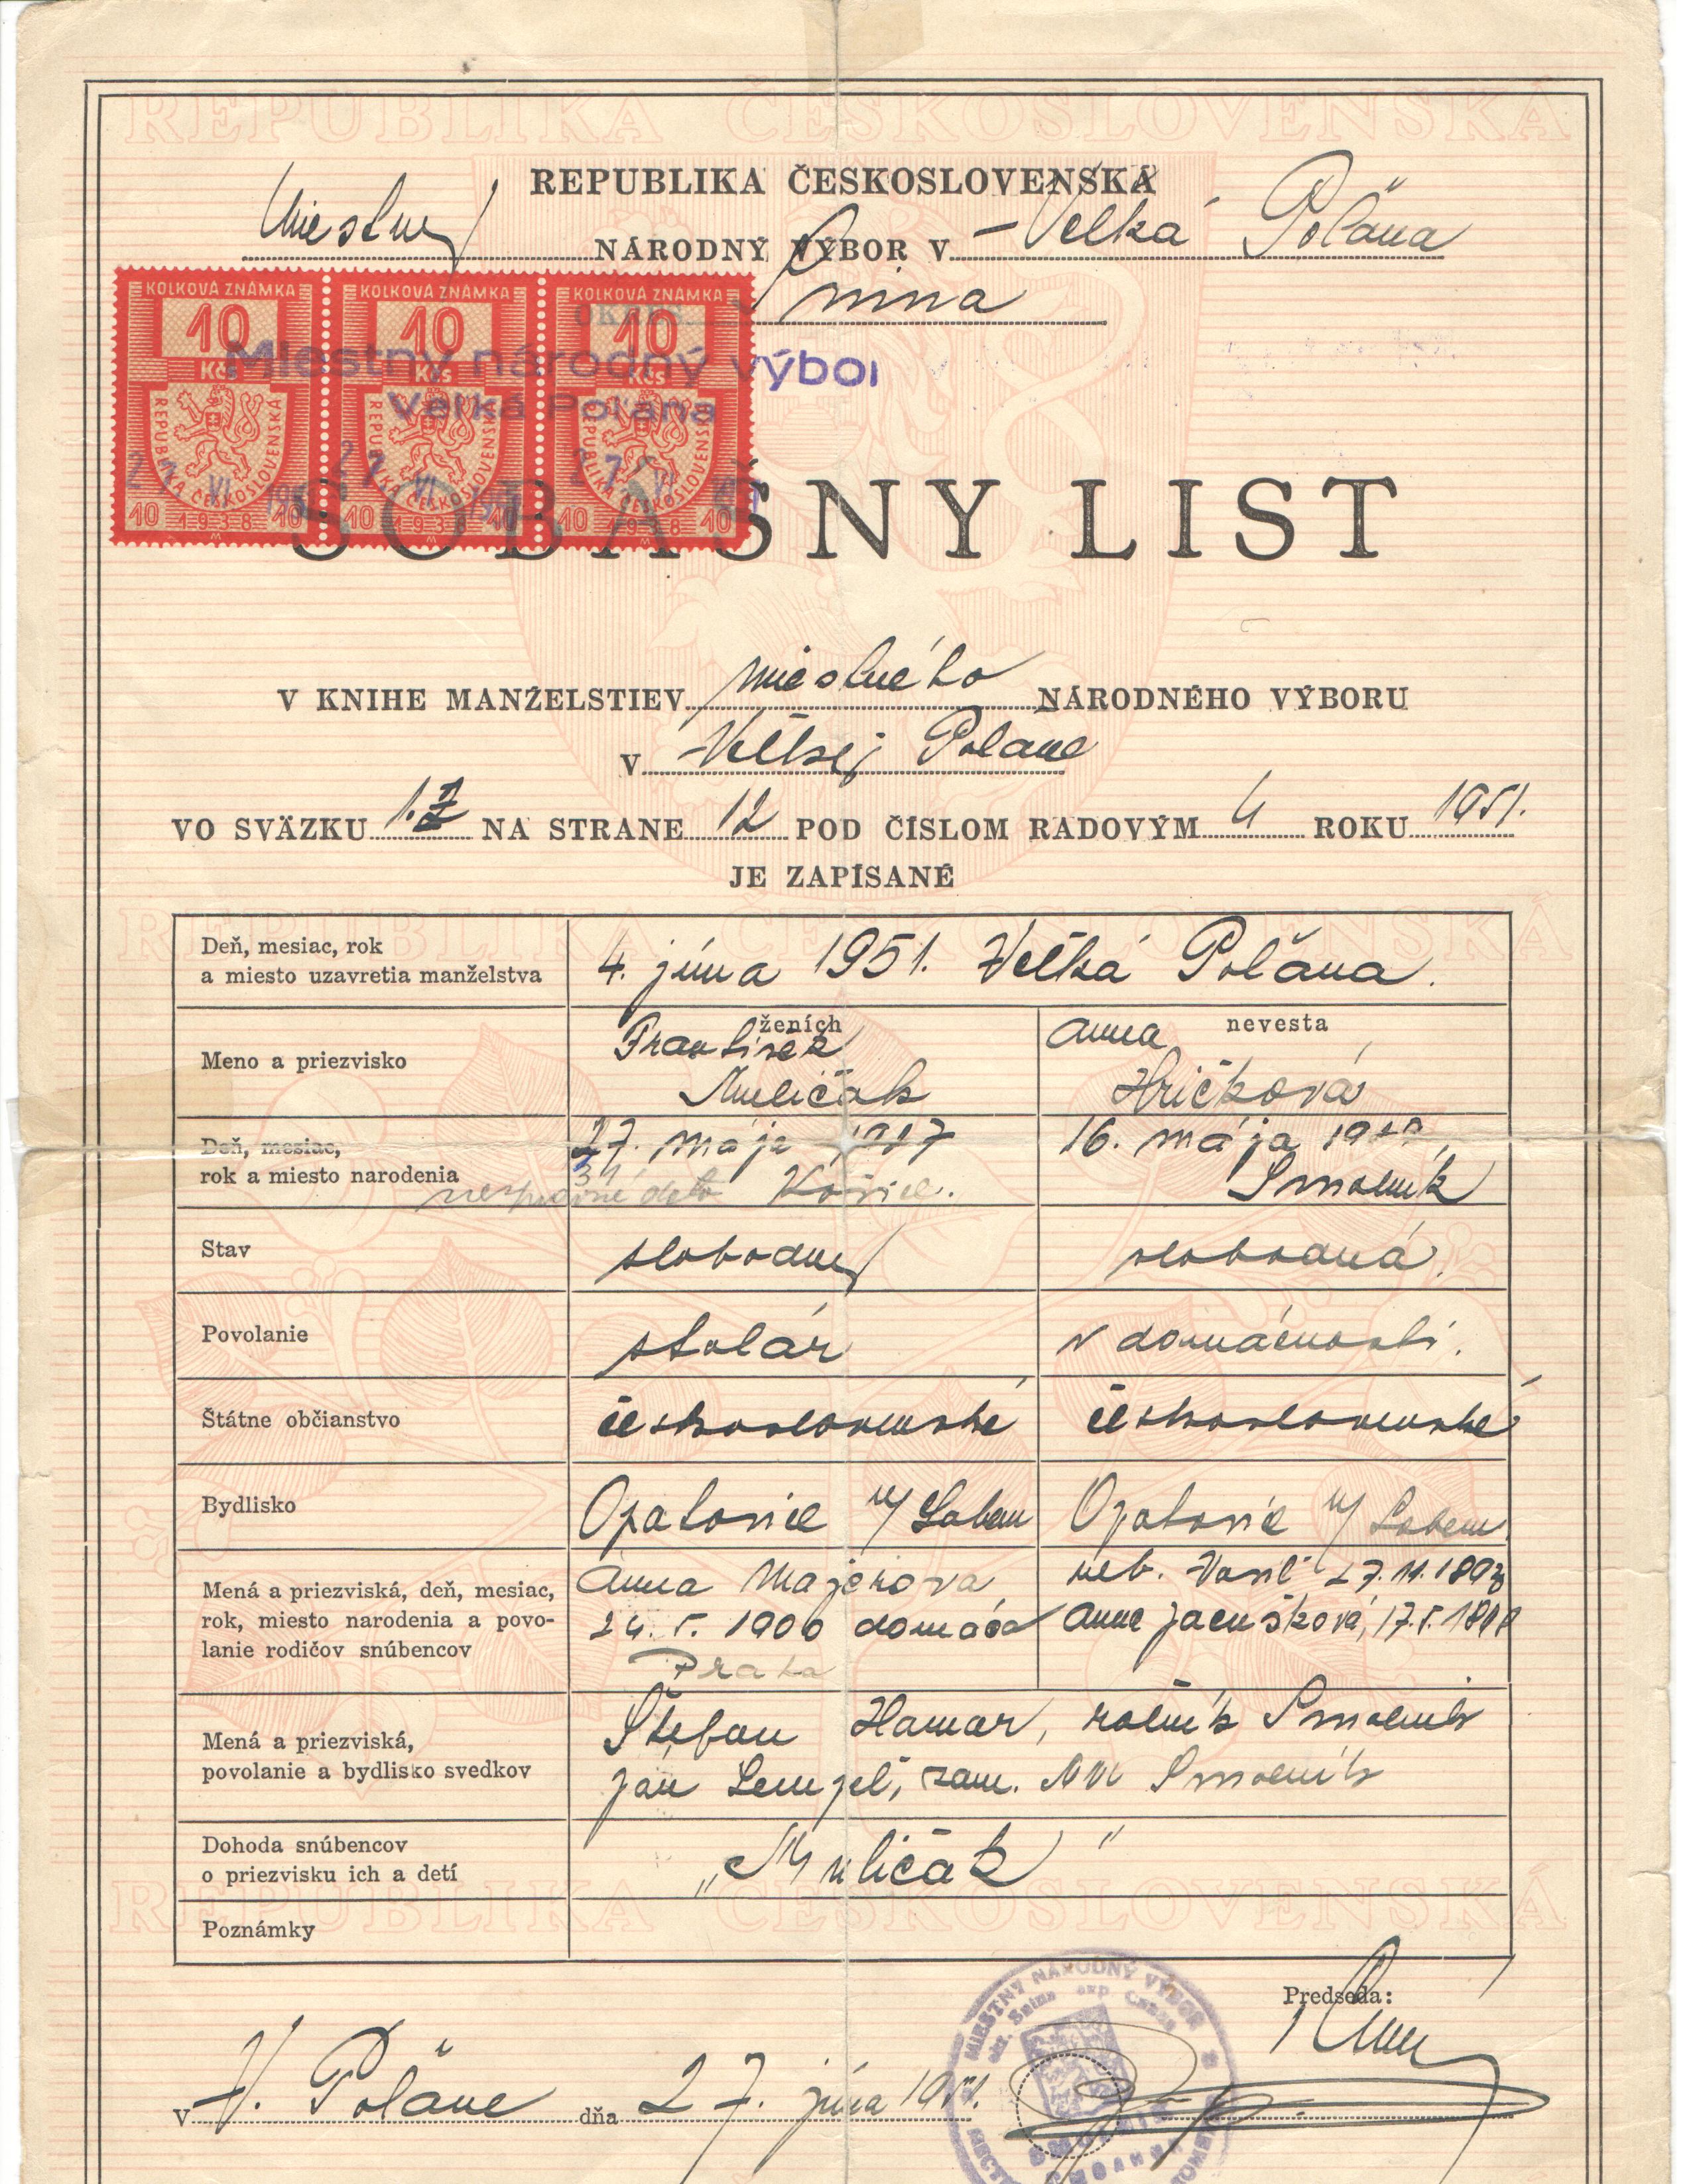 REPUBLIKA ČESKOSLOVENSKÁ
REPUBLIKA ČESKOSLOVENSKÁ
Miestny NÁRODNÝ VÝBOR V Veľká Poľana
OKRES Snina
KOLKOVÁ ZNÁMKA KOLKOVÁ ZNÁMKA KOLKOVÁ ZNÁMKA
10 10 10
Kčs Kčs Kčs
Miestny národný výbor
Veľká Poľana
REPUBLIKA ČESKOSLOVENSKÁ REPUBLIKA ČESKOSLOVENSKÁ REPUBLIKA ČESKOSLOVENSKÁ
27 VI 27 VI 27
10 1938 10 10 1938 10 10 1938 10
SOBÁŠNY LIST
V KNIHE MANŽELSTIEV miestného NÁRODNÉHO VÝBORU
V Veľkej Poľane
VO SVÄZKU 1. NA STRANE 12 POD ČÍSLOM RADOVÝM 4 ROKU 1951.
JE ZAPÍSANÉ
REPUBLIKA ČESKOSLOVENSKÁ
Deň, mesiac, rok
a miesto uzavretia manželstva 4. júna 1951. Veľká Poľana.
ženích nevesta
Meno a priezvisko František Muličák Anna Hričková
Deň, mesiac,
rok a miesto narodenia 27. mája 1927 Košice. 16. mája Smolník
31 nesprávné
Stav slobodný slobodná.
Povolanie stolár v domácnosti.
Štátne občianstvo československé československé
Bydlisko Opatovice n/ Labem Opatovic n/ Labem
Mená a priezviská, deň, mesiac,
rok, miesto narodenia a povo-
lanie rodičov snúbencov
Anna Majerova
24. 5. 1900 domáca
Praha
neb. Vasiľ 27. 11. 1893
Anna 17. 5.
Mená a priezviská,
povolanie a bydlisko svedkov
Štefan Hamar, roľník Smolník
Ján zam. Smolník
Dohoda snúbencov
o priezvisku ich a detí „Muličák"
REPUBLIKA ČESKOSLOVENSKÁ
Poznámky
MIESTNY NÁRODNÝ VÝBOR
okr. Snina exp
SMOLNÍK
Predseda:
v V. Poľane dňa 27. júna 1951.